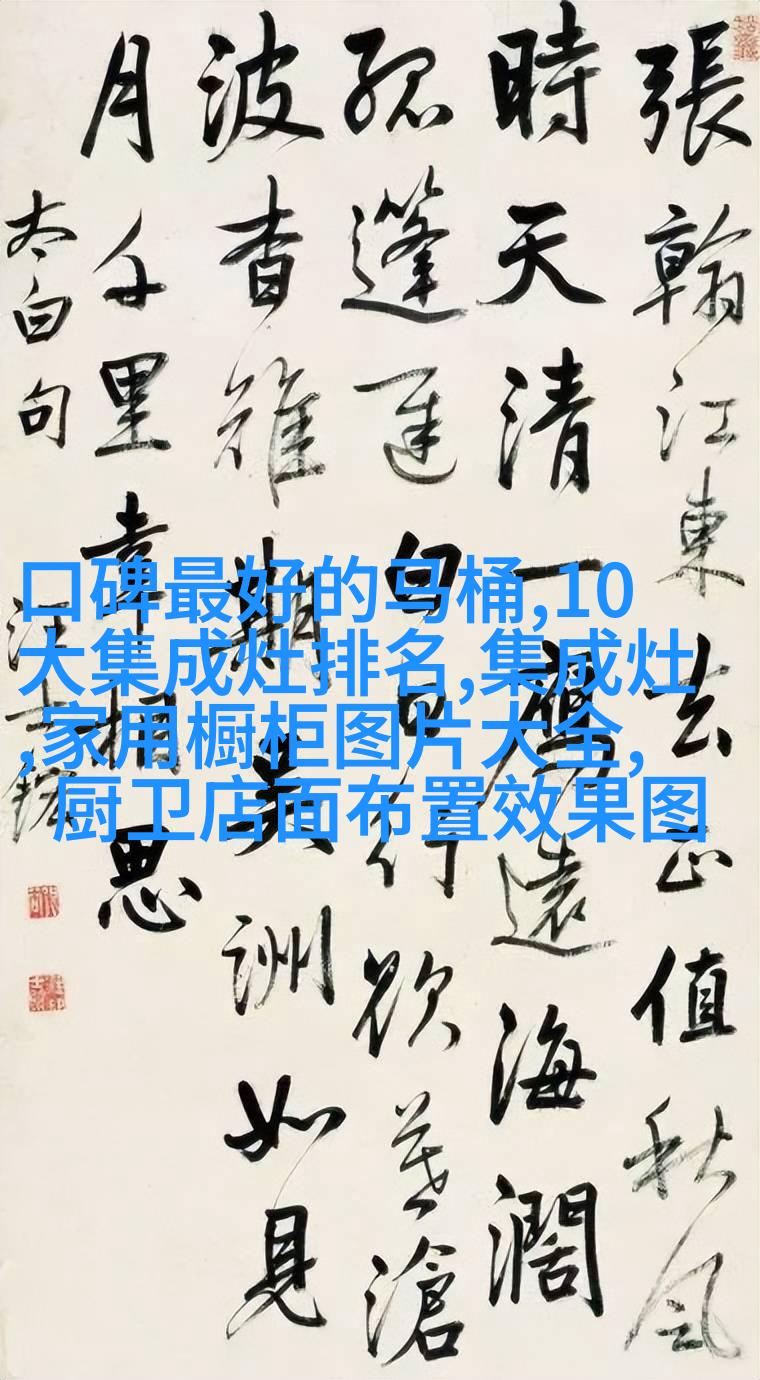 張翰江東去正值秋風
時天清一鴈遠海濶
孤篷遲白日行欲莫滄
波杳難期吳洲如見
月千里幸相思
太白句
汪士鋐
口碑最好的马桶,10
大集成灶排名,集成灶
,家用橱柜图片大全,
厨卫店面布置效果图